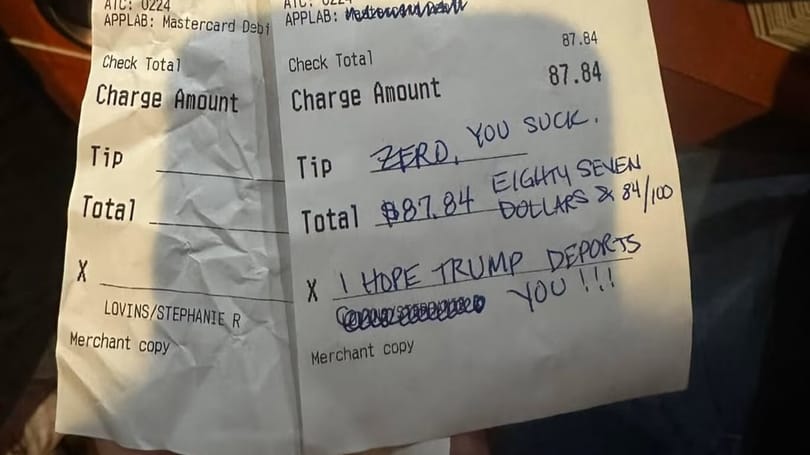 ATC: 0224
APPLAB: Mastercard Debi
Check Total
Charge Amount
Tip
Total
X
LOVINS/STEPHANIE R
Merchant copy
APPLAB:
Check Total 87.84
Charge Amount 87.84
Tip ZERO, YOU SUCK.
Total $87.84 EIGHTY SEVEN
DOLLARS & 84/100
X I HOPE TRUMP DEPORTS
YOU !!!
Merchant copy